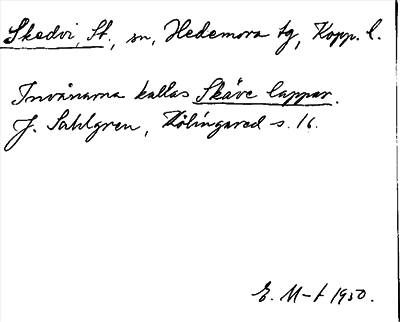 Skedvi, St., sn, Hedemora tg, Kopp. l.
Invånarna kallas Skäve lappar.
J. Sahlgren, Kölingared s. 16.
E. M-t 1930.